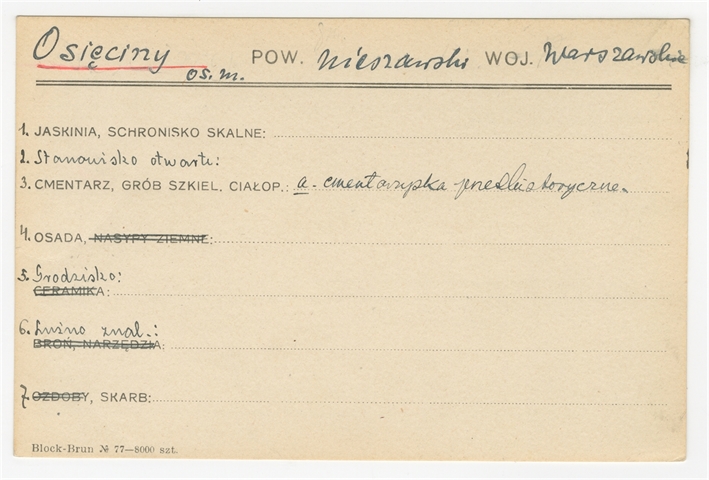 Osięciny POW. Nieszawski WOJ. Warszawskie
os. m.
1. JASKINIA, SCHRONISKO SKALNE:
2. Stanowisko otwarte:
3. CMENTARZ, GRÓB SZKIEL. CIAŁOP.: a. cmentarzyska prehistoryczne.
4. OSADA, NASYPY ZIEMNE:
5. Grodzisko:
CERAMIKA:
6. Luźno znal.:
BROŃ, NARZĘDZIA:
7. OZDOBY, SKARB:
Block-Brun № 77—8000 szt.